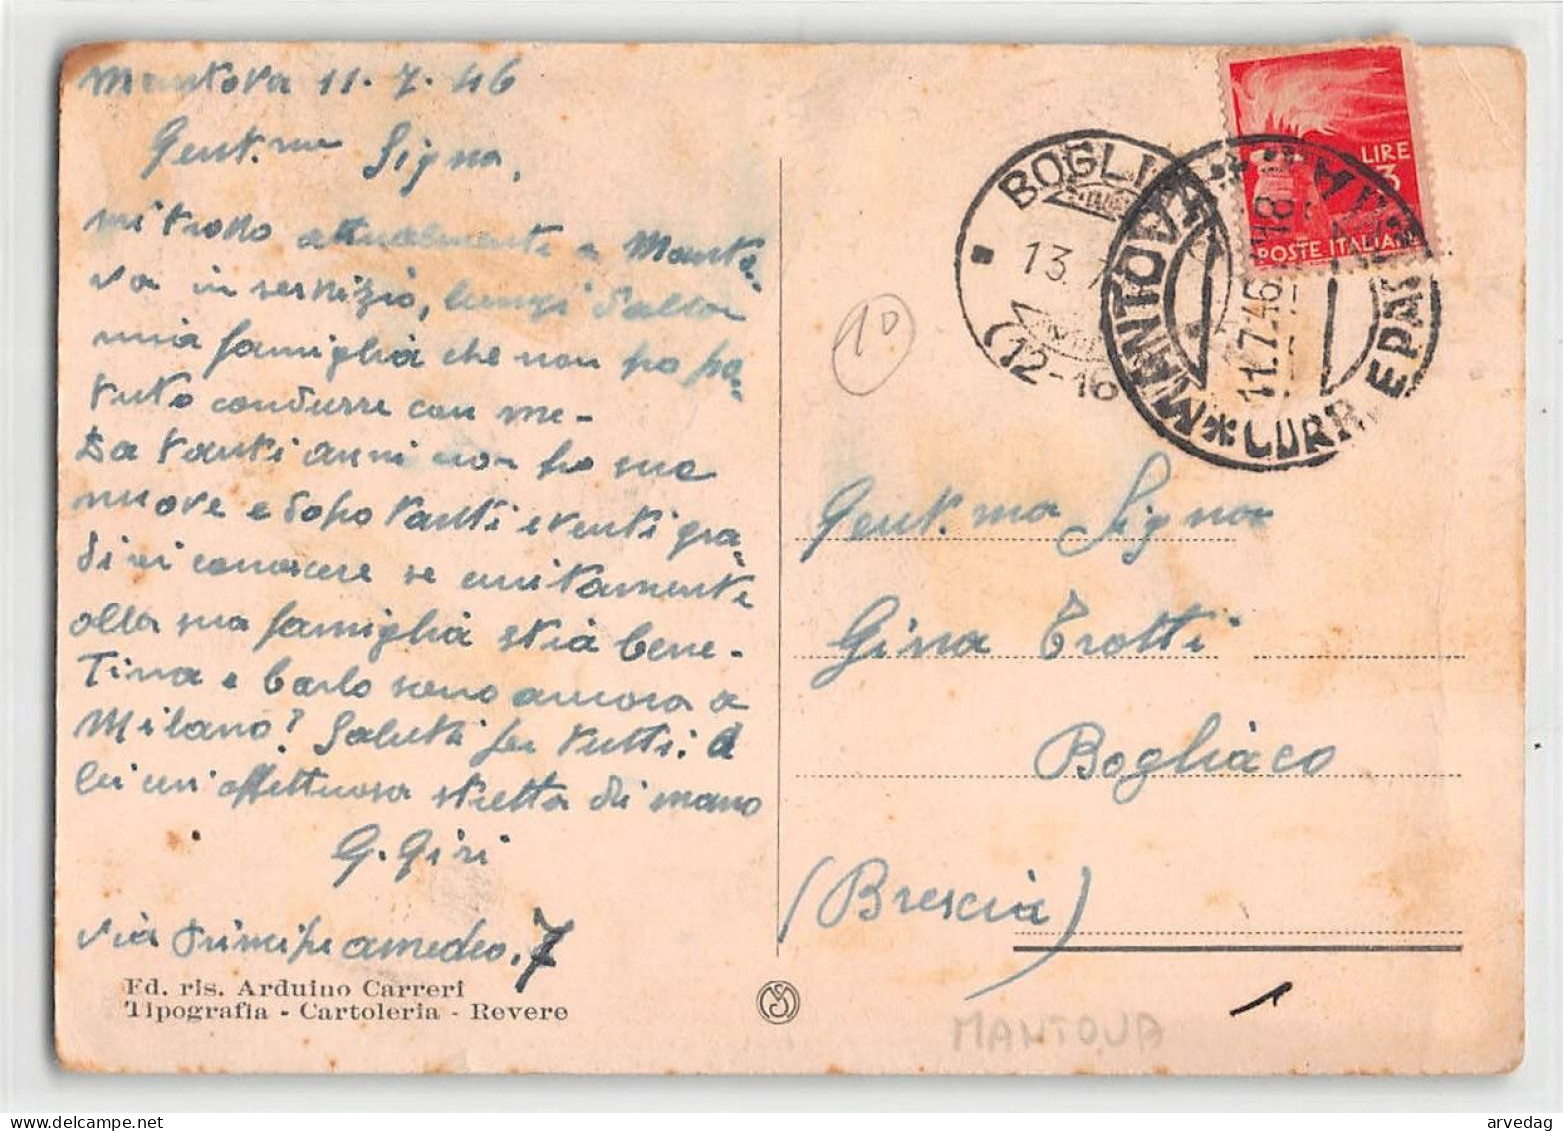 Mantova 11.7.46
Gent.ma Signa,
mi trovo attualmente a Manto=
va in servizio, lungi dalla
mia famiglia che non ho po=
tuto condurre con me-
Da tanti anni non ho sue
nuove e dopo tanti eventi gra=
direi conoscere se unitamente
alla sua famiglia stia bene-
Tina e Carlo sono ancora a
Milano? Saluti per tutti. A
lei un'affettuosa stretta di mano
G. Giri
via Principe amedeo. 7
Ed. ris. Arduino Carreri
Tipografia - Cartoleria - Revere
1°
BOGLI
13.7
(12-16
MANTOVA
11.7.46 18
CORR. E PA
LIRE
3
POSTE ITALIANE
Gent.ma Signa
Gina Trotti
Bogliaco
(Brescia)
MANTOVA
arvedag